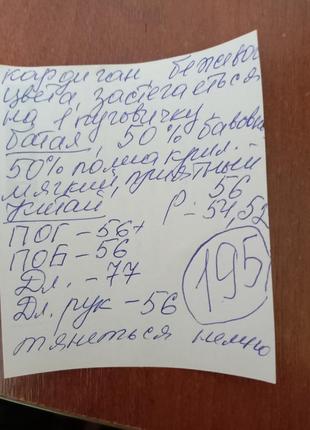 кардиган, бежевого
цвета, застегається
на 1 пуговичку
батал, 50% бавовна
50% полиакрил. -
мягкий, приятный
56
Р - 54, 52
ПОГ - 56+
ПОБ - 56
Дл. - 77
195
Дл. рук - 56
тянеться немно